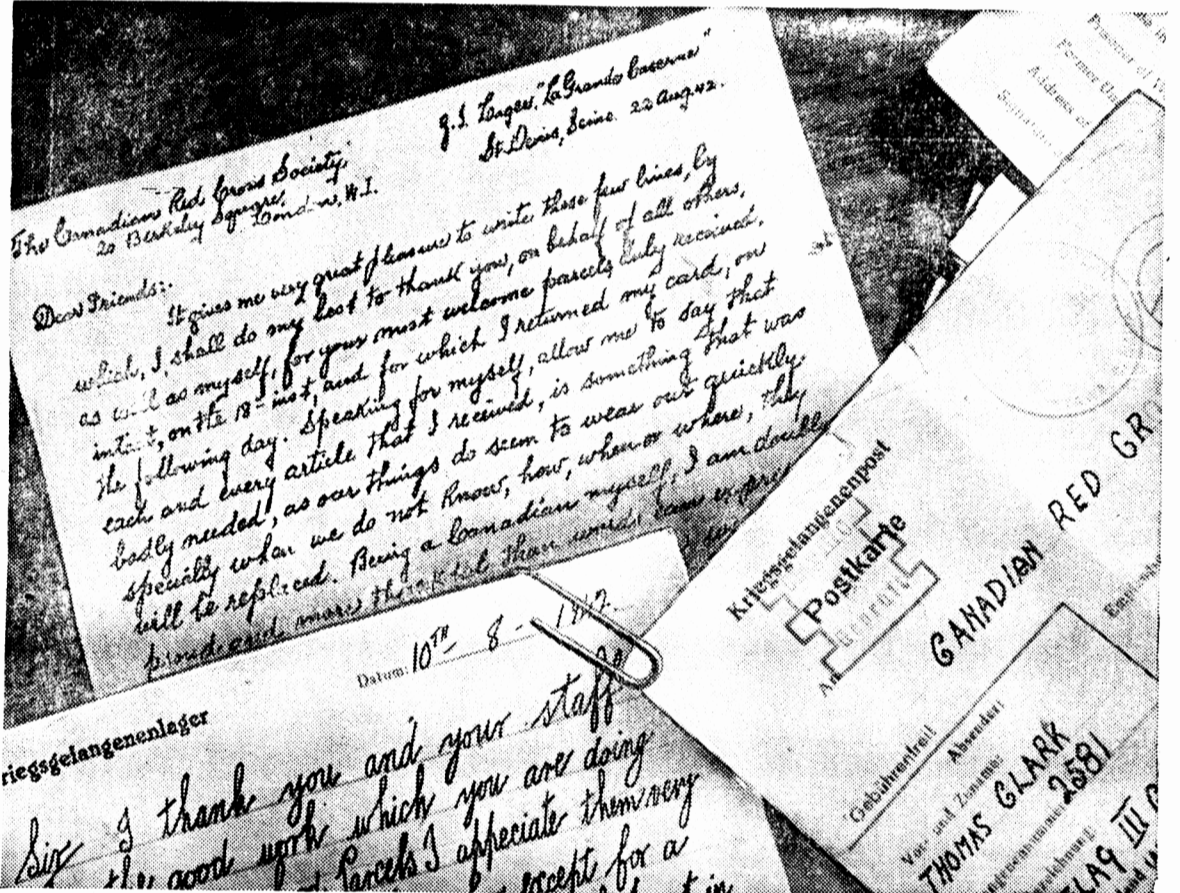 "La Grande Caserne"
St. Denis, Seine. 22 Aug. 42.
The Canadian Red Cross Society,
20 Berkeley Square,
London, W.I.
Dear Friends:.
It gives me very great pleasure to write these few lines, by
which, I shall do my best to thank you, on behalf of all others,
as well as myself, for your most welcome parcels duly received,
on the 18- inst, and for which I returned my card, on
the following day. Speaking for myself, allow me to say that
each and every article that I received, is something that was
badly needed, as our things do seem to wear out quickly.
specially when we do not know, how, when or where, they
will be replaced. Being a Canadian myself, I am doubly
proud and more thankful than words can
Datum: 10TH - 8 -
riegsgefangenenlager
Sir I thank you and your staff
the good work which you are doing
Parcels I appeciate them very
except for a
in
Former
Address of
Kriegsgefangenenpost
Postkarte
Geprüft
An
CANADIAN RED CR
Gebührenfrei!
Absender:
Vor- und Zuname:
THOMAS CLARK
2581
LAG III C